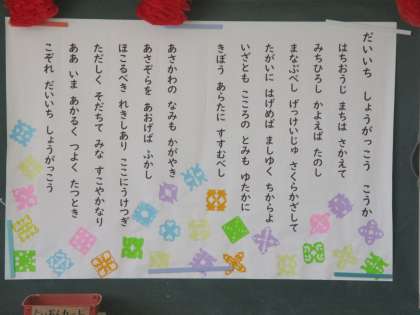 だいいち しょうがっこう こうか
はちおうじ まちは さかえて
みちひろし かよえば たのし
まなぶべし げっけいじゅ さくらかざして
たがいに はげめば ましゆく ちからよ
いざとも こころの とみも ゆたかに
きぼう あらたに すすむべし
あさかわの なみも かがやき
あさぞらを あおげば ふかし
ほこるべき れきしあり ここにうけつぎ
ただしく そだちて みな すこやかなり
ああ いま あかるく つよく たつとき
こぞれ だいいち しょうがっこう